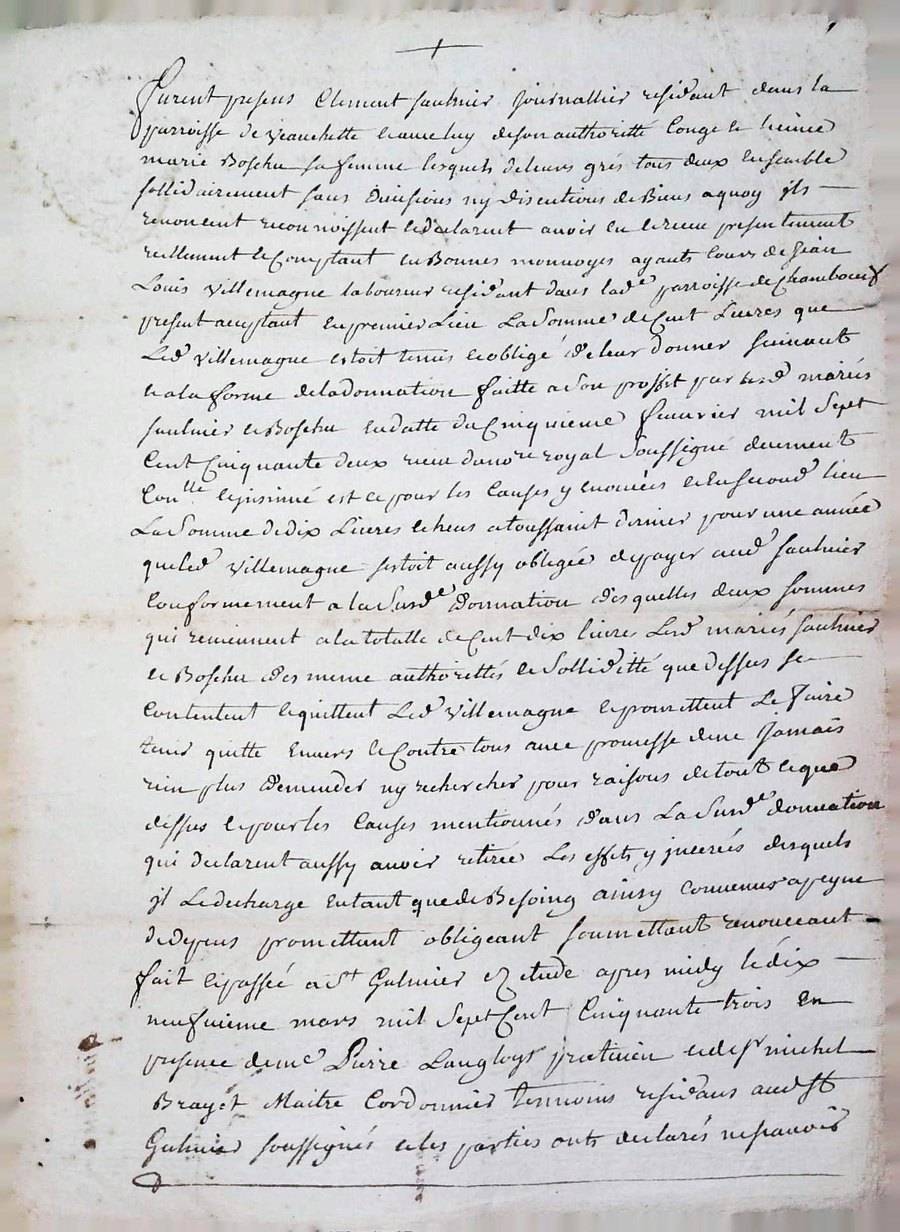 Furent presens Clement faulnier journallier residant dans la
parroisse de veauchette et avec luy de son authoritté Congé et licence
marie Boschu sa femme lesquels de leurs grés tous deux ensemble
sollidairement sans Divisions ny discutions de Biens a quoy ils
renoncent reconnoissent et declarent avoir eu et receu presentement
reellement et Comptant en Bonnes monnoyes ayants Cours de Jean
Louis villemagne laboureur residant dans lad.e parroisse de Chambœuf
present acceptant en premier Lieu La Somme de Cent Livres que
Led villemagne estoit tenus et obligé de leur donner suivant
et a la forme de la donnation faitte a Son proffit par lesd mariés
faulnier et Boschu en datte du Cinquieme feuvrier mil Sept
Cent Cinquante deux receu du no.re royal Soussigné deuement
Con.lle et insinué est ce pour les Causes y enoncées et en Second lieu
La Somme de dix Livres escheus a toussaint dernier pour une année
que led villemagne sestoit aussy obligée de payer aud faulnier
Conformement a la Susd.e donnation des quelles deux sommes
qui reviennent a la totalle de Cent dix livres Lesd mariés faulnier
et Boschu des meme authorittés et Solliditté que dessus se
Contentent et quittent Led villemagne et promettent Le faire
tenir quitte Envers et Contre tous avec promesse de ne Jamais
rien plus demender ny rechercher pour raisons de tout ce que
dessus et pour les Causes mentionnés dans La Susd.e donnation
qui declarent aussy avoir retirée Les effets y inserés desquels
jl Le decharge en tant que de Besoing ainsy Convenus a peyne
de depens promettant obligeant soumettant renonceant
fait et passée a St Galmier ez etude apres midy le dix
neufvieme mars mil Sept Cent Cinquante trois en
presence de me Pierre Langloys praticien et de sr michel
Brayet Maitre Cordonnier temoins residans aud St
Galmier soussignés et les parties onts declarés ne scavoir